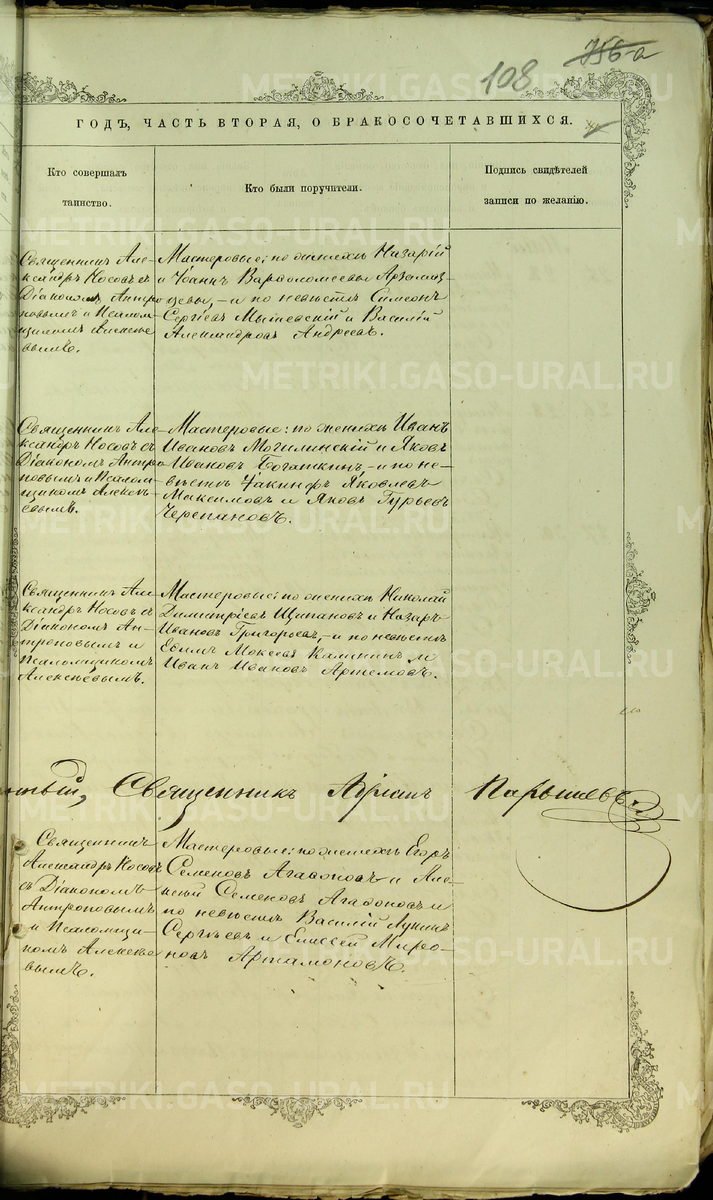 108
756-а
ГОДЪ, ЧАСТЬ ВТОРАЯ, О БРАКОСОЧЕТАВШИХСЯ.
Кто совершалъ
таинство.
Кто были поручители.
Подпись свидѣтелей
записи по желанію.
Священникъ Але-
ксандръ Носовъ съ
Діакономъ Антро-
повымъ и Псалом-
щикомъ Алексѣе-
вымъ.
Мастеровые: по женихѣ Назарій
и Іоаннъ Варѳоломеевы Арзамас-
цевы, – и по невѣстѣ Симеонъ
Сергіевъ и Василій
Александровъ Андреевъ.
Священникъ Але-
ксандръ Носовъ съ
Діакономъ Антро-
повымъ и Псалом-
щикомъ Алексѣ-
евымъ.
Мастеровые: по женихѣ Иванъ
Ивановъ Могилинскій и Яковъ
Ивановъ Богаткинъ, – и по не-
вѣстѣ Іакинфъ Яковлевъ
Максимовъ и Яковъ Гурьевъ
Черепановъ.
Священникъ Але-
ксандръ Носовъ съ
Діакономъ Ан-
троповымъ и
Псаломщикомъ
Алексѣевымъ.
Мастеровые: по женихѣ Николай
Димитріевъ Щипановъ и Назаръ
Ивановъ Григорьевъ, – и по невѣстѣ
Евфимъ Мокеевъ Калининъ и
Иванъ Ивановъ Артемовъ.
Священникъ
Священникъ
Александръ Носовъ
съ Діакономъ
Антроповымъ
и Псаломщи-
комъ Алексѣе-
вымъ.
Мастеровые: по женихѣ Егоръ
Семеновъ Агафоновъ и Але-
ксѣй Семеновъ Агафоновъ и
по невѣстѣ Василій Лукинъ
Сергѣевъ и Елисей Миро-
новъ Артамоновъ.
METRIKI.GASO-URAL.RU